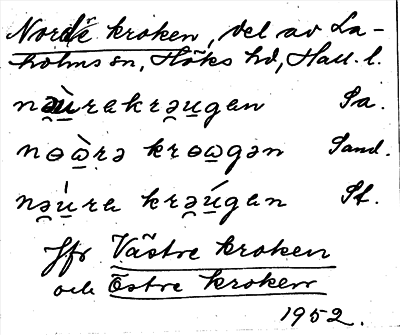 Nordre kroken, del av La-
holms sn, Höks hd, Hall. l.
nəùrekrəugen Sa.
nɵὼrə krɵωgən Sand.
nəúre krəúgen St.
Jfr Västre kroken
och Östre kroken
1952.